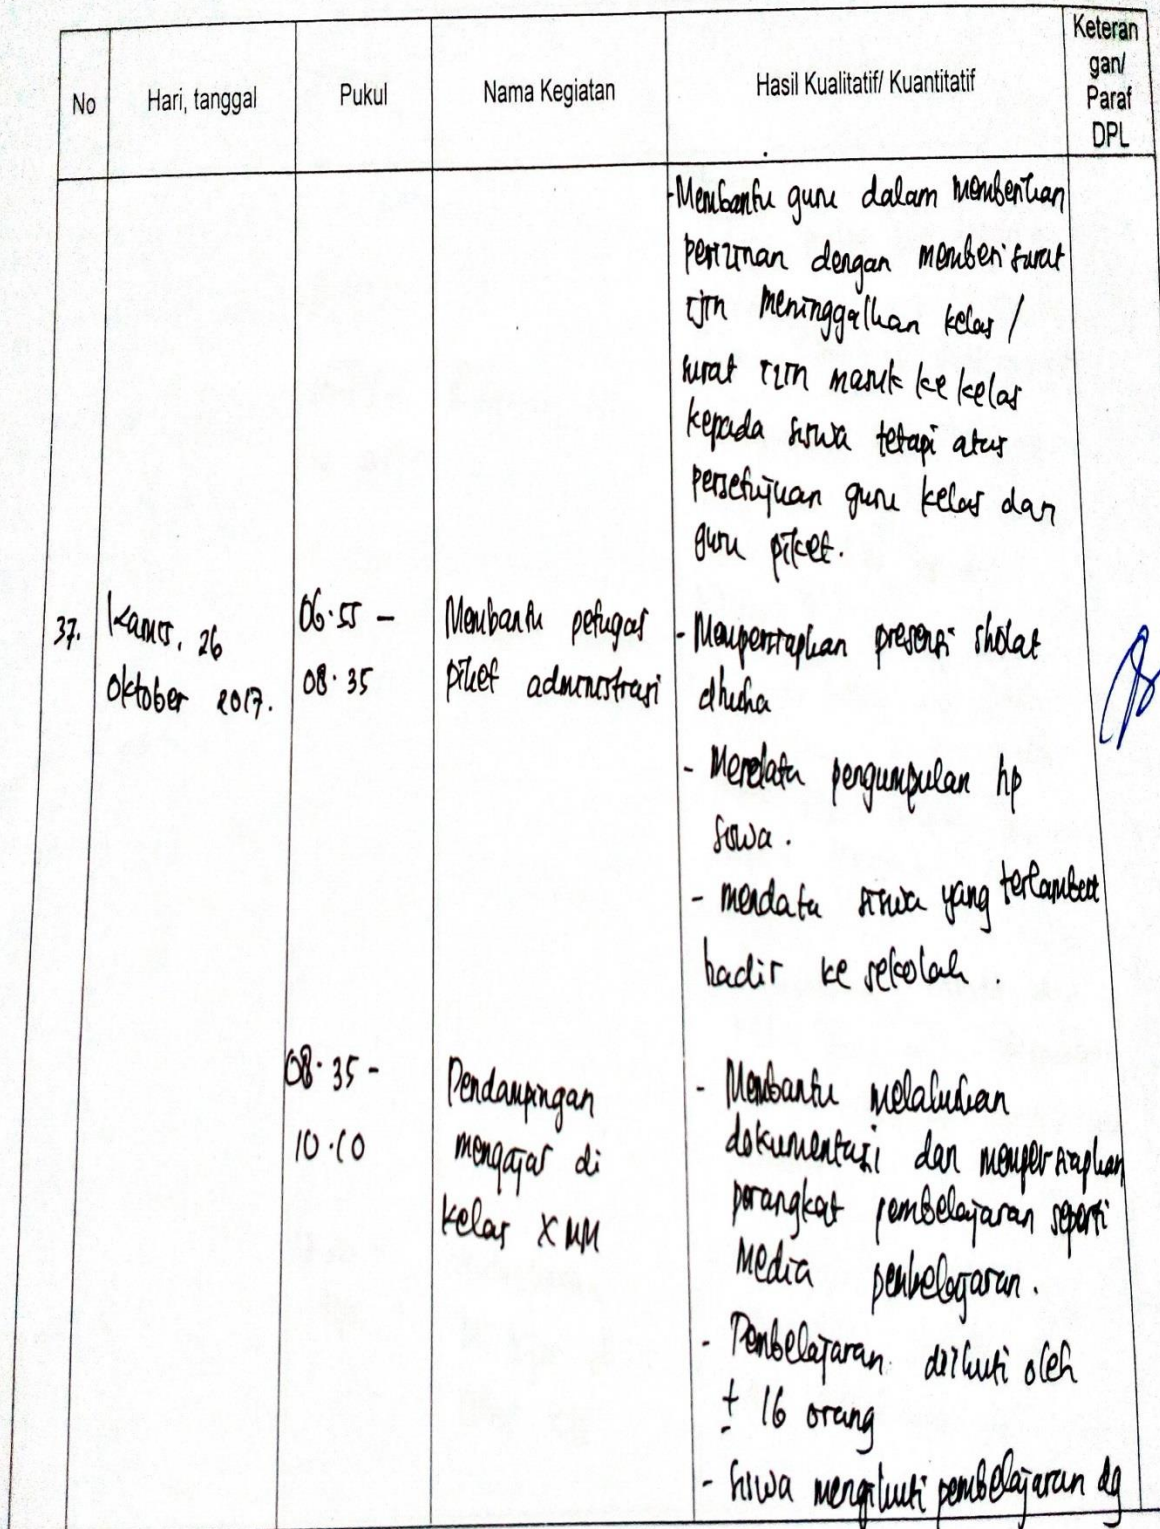 No
Hari, tanggal
Pukul
Nama Kegiatan
Hasil Kualitatif/ Kuantitatif
Keteran
gan/
Paraf
DPL
- Membantu guru dalam memberikan
perizinan dengan memberi surat
ijin meninggalkan kelas /
surat izin masuk ke kelas
kepada siswa tetapi atas
persetujuan guru kelas dan
guru piket.
37.
Kamis, 26
Oktober 2017.
06.55 -
08.35
Membantu petugas
piket administrasi
- Mempersiapkan presensi sholat
dhuha
- Mendata pengumpulan hp
siswa.
- mendata siswa yang terlambat
hadir ke sekolah.
08.35 -
10.10
Pendampingan
mengajar di
kelas X MM
- Membantu melakukan
dokumentasi dan mempersiapkan
perangkat pembelajaran seperti
Media pembelajaran.
- Pembelajaran diikuti oleh
± 16 orang
- Siswa mengikuti pembelajaran dg